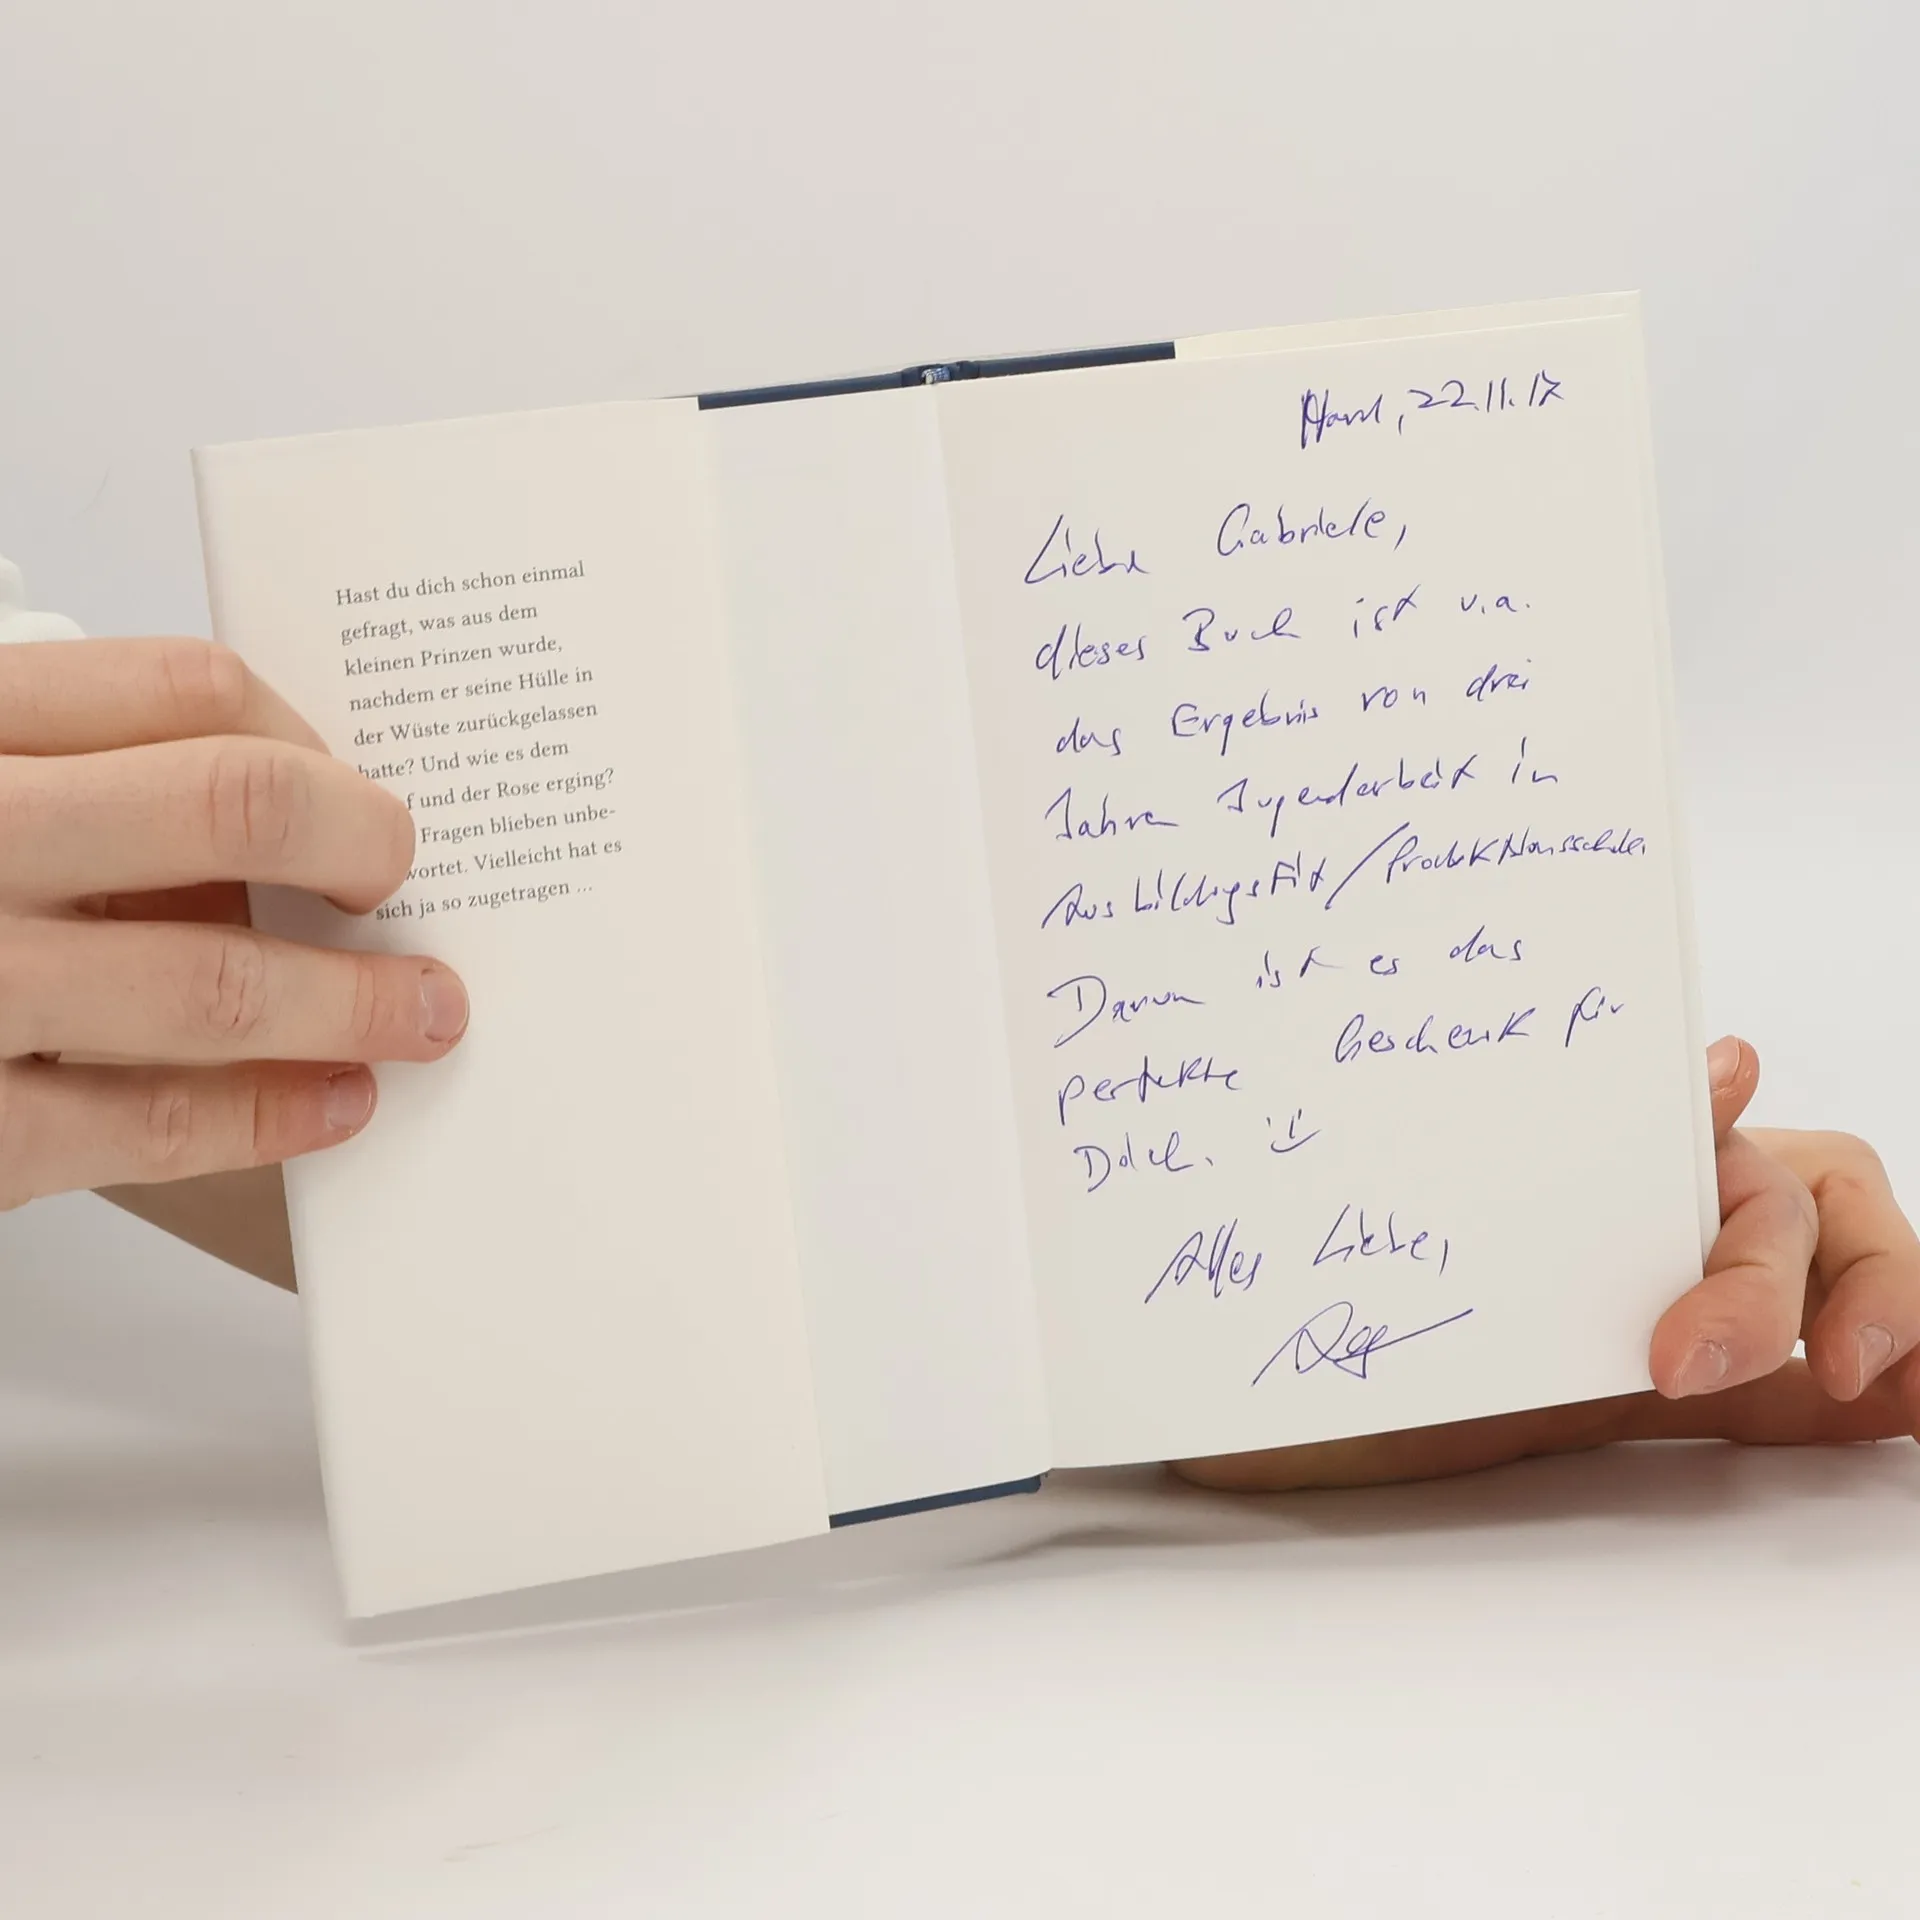 Hast du dich schon einmal
gefragt, was aus dem
kleinen Prinzen wurde,
nachdem er seine Hülle in
der Wüste zurückgelassen
hatte? Und wie es dem
f und der Rose erging?
Fragen blieben unbe-
wortet. Vielleicht hat es
sich ja so zugetragen ...
Hard, 22.11.17
Liebe Gabriele,
dieses Buch ist u.a.
das Ergebnis von drei
Jahren Jugendarbeit in
AusbildungsFit/Produktionsschule.
Darum ist es das
perfekte Geschenk für
Dich. :)
Alles Liebe,